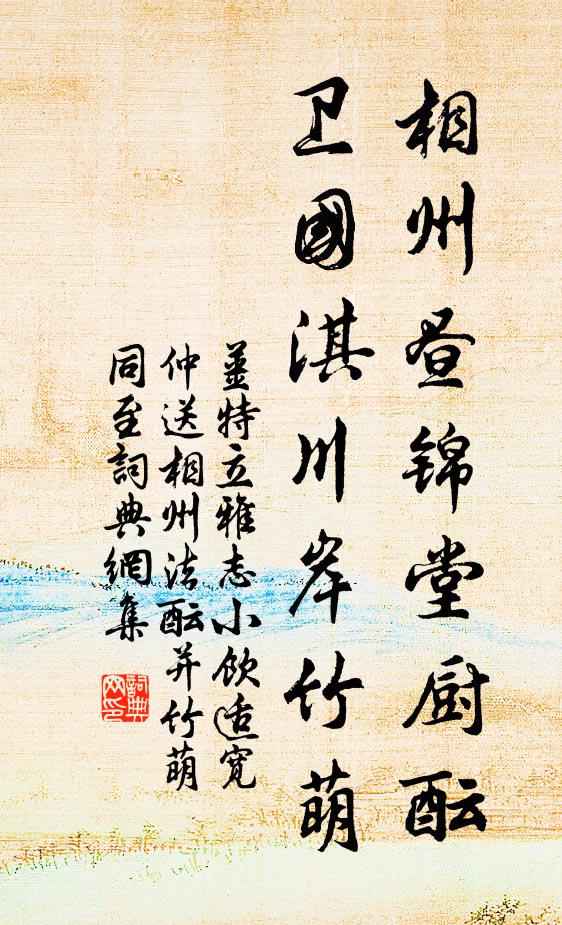 相州昼锦堂厨酝
卫國淇川岸竹萌
姜特立雅志小饮适宽
仲送相州法酝并竹萌
同至詞典網集
詞典
网印